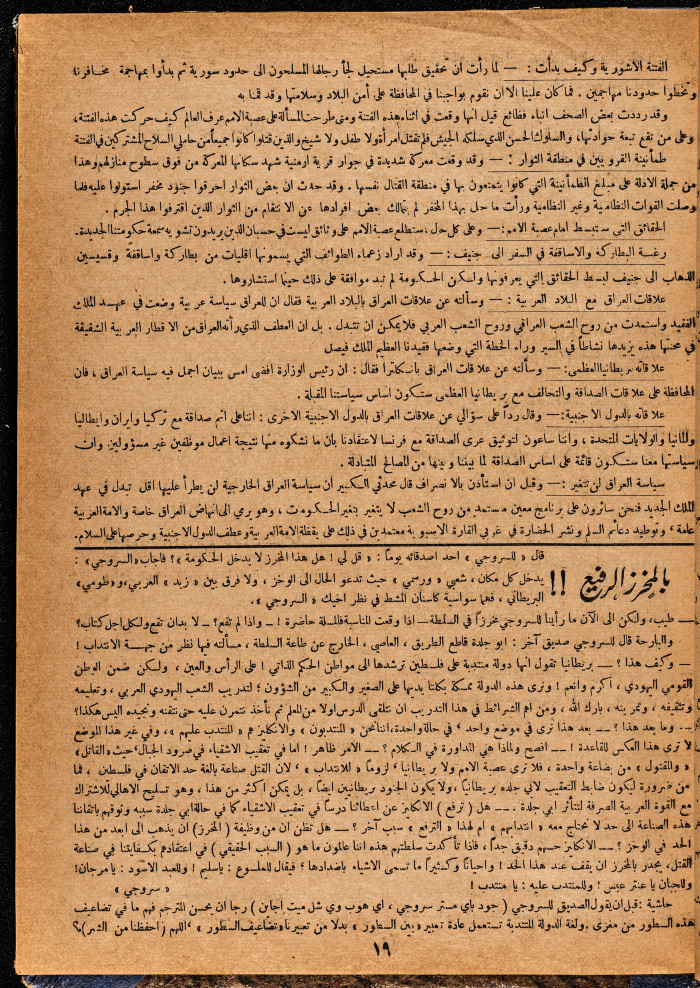 الفتنة الآشورية وكيف بدأت : — لما رأت ان تحقيق طلبها مستحيل لجأ رجالها المسلحون الى حدود سورية ثم بدأوا بمهاجمة مخافرنا
وتخطوا حدودنا مهاجمين . فما كان علينا الا ان نقوم بواجبنا في المحافظة على أمن البلاد وسلامتها وقد قمنا به
وقد رددت بعض الصحف انباء فظائع قيل انها وقعت في اثناء هذه الفتنة ومتى طرحت المسألة على عصبة الامم عرف العالم كيف حركت هذه الفتنة ،
وعلى من تقع تبعة حوادثها ، والسلوك الحسن الذي سلكه الجيش فلم تقتل امرأة ولا طفل ولا شيخ والذين قتلوا كانوا جميعاً من حاملي السلاح المشتركين في الفتنة
طمأنينة القرويين في منطقة الثوار : — وقد وقعت معركة شديدة في جوار قرية ارمنية شهد سكانها المعركة من فوق سطوح منازلهم وهذا
من جملة الادلة على مبلغ الطمأنينة التي كانوا يتمتعون بها في منطقة القتال نفسها . وقد حدث ان بعض الثوار احرقوا جنود مخفر استولوا عليه فلما
وصلت القوات النظامية وغير النظامية ورأت ما حل بهذا المخفر لم يتمالك بعض افرادها عن الانتقام من الثوار الذين اقترفوا هذا الجرم .
الحقائق التي ستبسط امام عصبة الامم : — وعلى كل حال ، ستطلع عصبة الامم على وثائق ليست في حسبان الذين يريدون تشويه سمعة حكومتنا الجديدة .
رغبة البطاركة والاساقفة في السفر الى جنيف : — وقد اراد زعماء الطوائف التي يسمونها اقليات من بطاركة واساقفة وقسيسين
الذهاب الى جنيف لبسط الحقائق التي يعرفونها ولكن الحكومة لم تبد موافقة على ذلك حينما استشاروها .
علاقات العراق مع البلاد العربية : — وسألته عن علاقات العراق بالبلاد العربية فقال ان للعراق سياسة عربية وضعت في عهد الملك
الفقيد واستمدت من روح الشعب العراقي وروح الشعب العربي فلا يمكن ان تتبدل . بل ان العطف الذي رأته العراق من الاقطار العربية الشقيقة
في محنتها هذه يزيدها نشاطاً في السير وراء الخطة التي وضعها فقيدنا العظيم الملك فيصل
علاقاته ببريطانيا العظمى : — وسألته عن علاقات العراق بانكلترا فقال : ان رئيس الوزارة افضى امس ببيان اجمل فيه سياسة العراق ، فان
المحافظة على علاقات الصداقة والتحالف مع بريطانيا العظمى ستكون اساس سياستنا المقبلة .
علاقاته بالدول الاجنبية : — وقال رداً على سؤالي عن علاقات العراق بالدول الاجنبية الاخرى : اننا على اتم صداقة مع تركيا وايران وايطاليا
والمانيا والولايات المتحدة ، واننا ساعون لتوثيق عرى الصداقة مع فرنسا لاعتقادنا بان ما نشكوه منها نتيجة اعمال موظفين غير مسؤولين وان
سياستها معنا ستكون قائمة على اساس الصداقة لما بيننا وبينها من المصالح المتبادلة .
سياسة العراق لن تتغير : — وقبل ان استأذن بالانصراف قال محدثي الكبير أن سياسة العراق الخارجية لن يطرأ عليها اقل تبدل في عهد
الملك الجديد فنحن سائرون على برنامج معين مستمد من روح الشعب لا يتغير بتغير الحكومات ، وهو يرمي الى انهاض العراق خاصة والامة العربية
عامة ، وتوطيد دعائم السلم ونشر الحضارة في غربي القارة الاسيوية معتمدين في ذلك على يقظة الامة العربية وعطف الدول الاجنبية وحرصها على السلام .
بالمخرز الرفيع !!
قال « للسروجي » احد اصدقائه يوماً : « قل لي ! هل هذا المخرز لا يدخل الحكومة » ؟ فاجاب « السروجي » :
يدخل كل مكان ، شعبي « ورسمي » حيث تدعو الحال الى الوخز ، ولا فرق بين « زيد » العربي ، و « ظومي »
البريطاني ، فهما سواسية كاسنان المشط في نظر اخيك « السروجي » .
— طيب ، ولكن الى الآن ما رأينا للسروجي مخرزاً في السلطة — اذا وقعت المناسبة فالمسلة حاضرة ! — واذا لم تقع ؟ — لا بدان تقع ولكل اجل كتاب ؟
والبارحة قال للسروجي صديق آخر : ابو جلدة قاطع الطريق ، العاصي ، الخارج عن طاعة السلطة ، مسألته فيها نظر من جهة الانتداب !
— وكيف هذا ؟ — بريطانيا تقول انها دولة منتدبة على فلسطين ترشدها الى مواطن الحكم الذاتي ! على الرأس والعين ، ولكن ضمن الوطن
القومي اليهودي ، أكرم وانعم ! ونرى هذه الدولة ممسكة بكلتا يديها على الصغير والكبير من الشؤون ، لتدريب الشعب اليهودي العربي ، وتعليمه
وتثقيفه ، وتمرينه ، بارك الله ، ومن اهم الشرائط في هذا التدريب ان نتلقى الدرس اولا من المعلم ثم نأخذ نتمرن عليه حتى نتقنه ونجيده اليس هكذا ؟
— وما بعد هذا ؟ — بعد هذا نرى في موضع واحد ، في حالة واحدة ، اننا نحن « المنتدبون » والانكليز هم « المنتدب عليهم » ، وفي غير هذا الموضع
لا نرى هذا العكس للقاعدة ! — افصح ولماذا هي المداورة في الكلام ؟ — الامر ظاهر ! اما في تعقيب الاشقياء ، في ضرود الجبال ، حيث « القاتل »
« والمقتول » من بضاعة واحدة ، فلا نرى عصبة الامم ولا بريطانيا ، لزوماً « للانتداب » ، لان القتل صناعة بالغة حد الاتقان في فلسطين ، فما
من ضرورة ليكون ضابط التعقيب لابي جلده بريطانيا ، ولا يكون الجنود بريطانيين ايضاً ، بل يمكن اكثر من هذا ، وهو تسليح الاهالي للاشتراك
مع القوة العربية الصرفة لتتأثر ابي جلدة . — هل ( ترفع ) الانكليز عن اعطائنا درساً في تعقيب الاشقياء كما في حالة ابي جلدة سببه وثوقهم باتقاننا
هذه الصناعة الى حد لا نحتاج معه « انتدابهم » ام لهذا « الترفع » سبب آخر ؟ — هل تظن ان من وظيفة ( المخرز ) ان يذهب الى ابعد من هذا
الحد في الوخز ؟ — الانكليز حسهم دقيق جداً ، فاذا تأكدت سلطتهم هذه اننا عالمون ما هو ( السبب الحقيقي ) في اعتقادهم بكفايتنا في صناعة
القتل ، يجدر بالمخرز ان يقف عند هذا الحد ! واحياناً وكثيراً ما تسمى الاشياء باضدادها ؛ فيقال للملسوع : يا سليم ! وللعبد الاسود : يا مرجان !
وللجبان يا عنتر عبس ! وللمنتدب عليه : يا منتدب !
« سروجي »
حاشية : قبل ان يقول الصديق للسروجي ( جود باي مستر سروجي ، اي هوب وي شل ميت أجاين ) رجا ان يحسن المترجم فهم ما في تضاعيف
هذه السطور من مغزى . ولغة الدولة المنتدبة تستعمل عادة تعبير « بين السطور » بدلا من تعبيرنا « تضاعيف السطور » ، اللهم ( احفظنا من الشر ) ؟
١٩